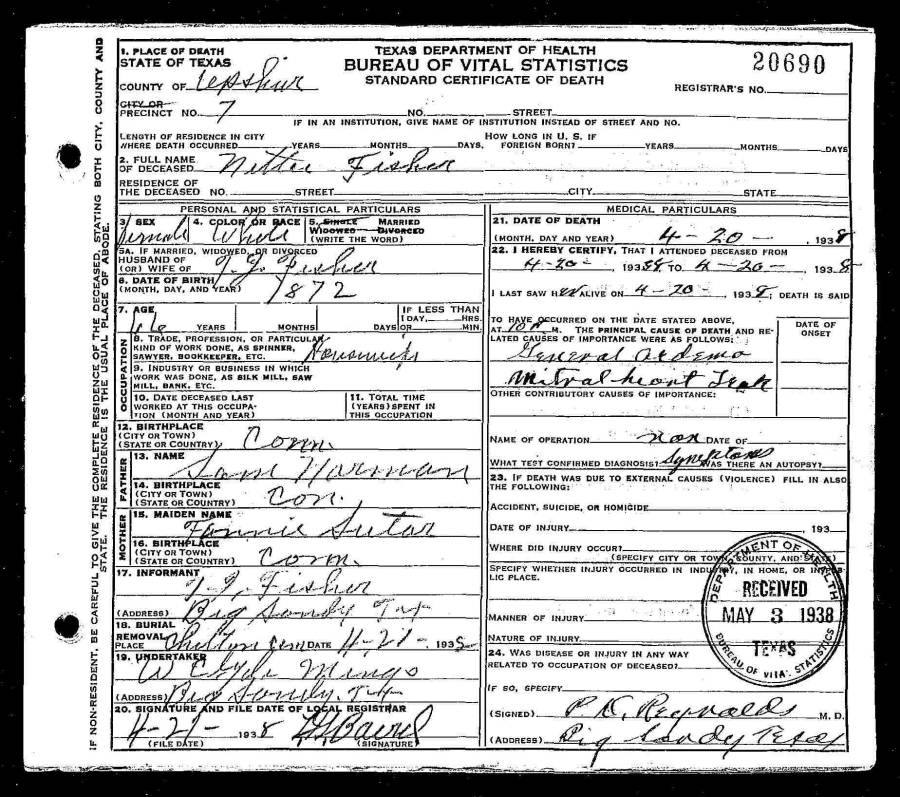 IF NON-RESIDENT, BE CAREFUL TO GIVE THE COMPLETE RESIDENCE OF THE DECEASED, STATING BOTH CITY, COUNTY AND
STATE. THE RESIDENCE IS THE USUAL PLACE OF ABODE.
TEXAS DEPARTMENT OF HEALTH
BUREAU OF VITAL STATISTICS
STANDARD CERTIFICATE OF DEATH
20690
REGISTRAR'S NO.
1. PLACE OF DEATH
STATE OF TEXAS
COUNTY OF Upshur
CITY OR
PRECINCT NO. 7 NO. STREET
IF IN AN INSTITUTION, GIVE NAME OF INSTITUTION INSTEAD OF STREET AND NO.
LENGTH OF RESIDENCE IN CITY HOW LONG IN U. S. IF
WHERE DEATH OCCURRED YEARS MONTHS DAYS, FOREIGN BORN? YEARS MONTHS DAYS
2. FULL NAME
OF DECEASED Nettie Fisher
RESIDENCE OF
THE DECEASED NO. STREET CITY STATE
PERSONAL AND STATISTICAL PARTICULARS
3. SEX 4. COLOR OR RACE 5. SINGLE MARRIED
WIDOWED DIVORCED
(WRITE THE WORD)
Female White
5A. IF MARRIED, WIDOWED, OR DIVORCED
HUSBAND OF
(OR) WIFE OF Fisher
6. DATE OF BIRTH
(MONTH, DAY, AND YEAR) 1872
7. AGE IF LESS THAN
66 YEARS MONTHS DAYS 1 DAY, HRS.
OR MIN.
OCCUPATION
8. TRADE, PROFESSION, OR PARTICULAR
KIND OF WORK DONE, AS SPINNER,
SAWYER, BOOKKEEPER, ETC. Housewife
9. INDUSTRY OR BUSINESS IN WHICH
WORK WAS DONE, AS SILK MILL, SAW
MILL, BANK, ETC.
10. DATE DECEASED LAST
WORKED AT THIS OCCUPA-
TION (MONTH AND YEAR)
11. TOTAL TIME
(YEARS) SPENT IN
THIS OCCUPATION
12. BIRTHPLACE
(CITY OR TOWN)
(STATE OR COUNTRY)
FATHER
13. NAME Sam Harman
14. BIRTHPLACE
(CITY OR TOWN)
(STATE OR COUNTRY) Con.
MOTHER
15. MAIDEN NAME
Fannie Sutar
16. BIRTHPLACE
(CITY OR TOWN)
(STATE OR COUNTRY)
17. INFORMANT
Fisher
(ADDRESS) Big Sandy Tex
18. BURIAL
REMOVAL
PLACE Chilton Cem DATE 4-21- 1938
19. UNDERTAKER
W Clyde Mings
(ADDRESS) Big Sandy, Tex
20. SIGNATURE AND FILE DATE OF LOCAL REGISTRAR
4-21- 1938
(FILE DATE) (SIGNATURE)
MEDICAL PARTICULARS
21. DATE OF DEATH
(MONTH, DAY AND YEAR) 4-20- 1938
22. I HEREBY CERTIFY, THAT I ATTENDED DECEASED FROM
4-20- 1938 TO 4-20- 1938
I LAST SAW HER ALIVE ON 4-20- 1938, DEATH IS SAID
TO HAVE OCCURRED ON THE DATE STATED ABOVE,
AT 10 M. THE PRINCIPAL CAUSE OF DEATH AND RE-
LATED CAUSES OF IMPORTANCE WERE AS FOLLOWS:
DATE OF
ONSET
General Oedema
Mitral heart Leak
OTHER CONTRIBUTORY CAUSES OF IMPORTANCE:
NAME OF OPERATION non DATE OF
WHAT TEST CONFIRMED DIAGNOSIS? Symptoms WAS THERE AN AUTOPSY?
23. IF DEATH WAS DUE TO EXTERNAL CAUSES (VIOLENCE) FILL IN ALSO
THE FOLLOWING:
ACCIDENT, SUICIDE, OR HOMICIDE
DATE OF INJURY 193
WHERE DID INJURY OCCUR?
(SPECIFY CITY OR TOWN, COUNTY, AND STATE)
SPECIFY WHETHER INJURY OCCURRED IN INDUSTRY, IN HOME, OR IN PUB-
LIC PLACE.
MANNER OF INJURY
NATURE OF INJURY
24. WAS DISEASE OR INJURY IN ANY WAY
RELATED TO OCCUPATION OF DECEASED?
IF SO, SPECIFY
(SIGNED) P. D. Reynalds M. D.
(ADDRESS) Big Sandy Texas
DEPARTMENT OF HEALTH
RECEIVED
MAY 3 1938
TEXAS
BUREAU OF VITAL STATISTICS